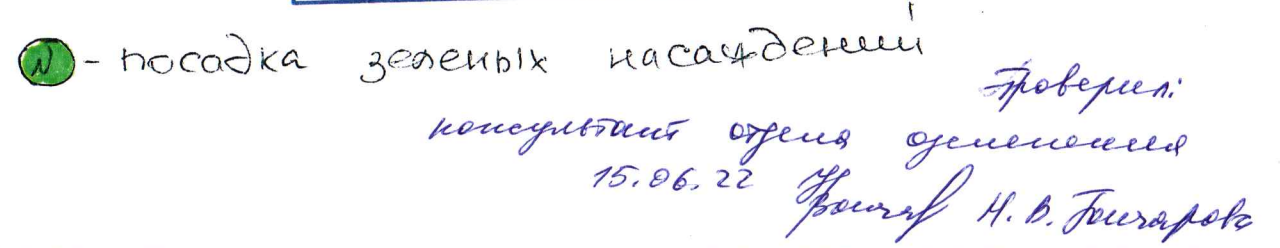 N - посадка зеленых насаждений
Проверил:
консультант отдела озеленения
15.06.22 Н. В. Гончарова